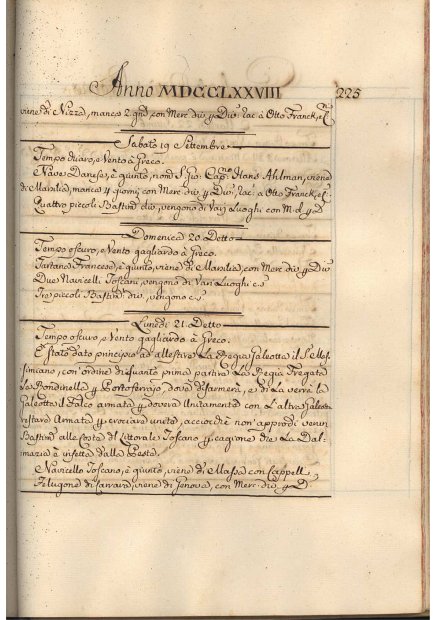 Anno MDCCLXXVIII 225
viene di Nizza, manca 2 gni con Merc. div. p Div. rac. à Otto Franck, e C.
Sabato 19 Settembre
Tempo chiaro, e Vento à Greco.
Nave Danese, è giunto, nom. S. Cap. Hans Ahlman, viene
di Marsilia, manca 4 giorni, con Merc. div. p Div. rac. à Otto Franck, e C.
Quattro piccoli Bastim. div. vengono di Varj Luoghi con M. d. p D.
Domenica 20. Detto
Tempo oscuro, e Vento gagliardo à Greco.
Tartana Francese, è giunto, viene di Marsilia, con Merc. div. p Div
Due Navicelli Toscani, vengono di Vari Luoghi c. s
Tre piccoli Bastim. div. vengono c. s
Lunedì 21. Detto
Tempo oscuro, e Vento gagliardo à Greco.
È stato dato principio ad allestire La Regia Galeotta il S. Mas-
simiano, con ordine di quanto prima partire La Regia Fregata
la Rondinella p Portoferrajo dove disarmerà, e di La verrà la
Galeotta il Falco armata p dovere Unitamente con L'altra Galeotta
restare Armata p crociare unite, acciochè non approdi verun
Bastim. alle Coste del Littorale Toscano p cagione che La Dal-
mazia è infetta dalla Peste.
Navicello Toscano, è giunto, viene di Massa con Cappelli,
Felugone di Carrara, viene di Genova, con Merc. div. p D.